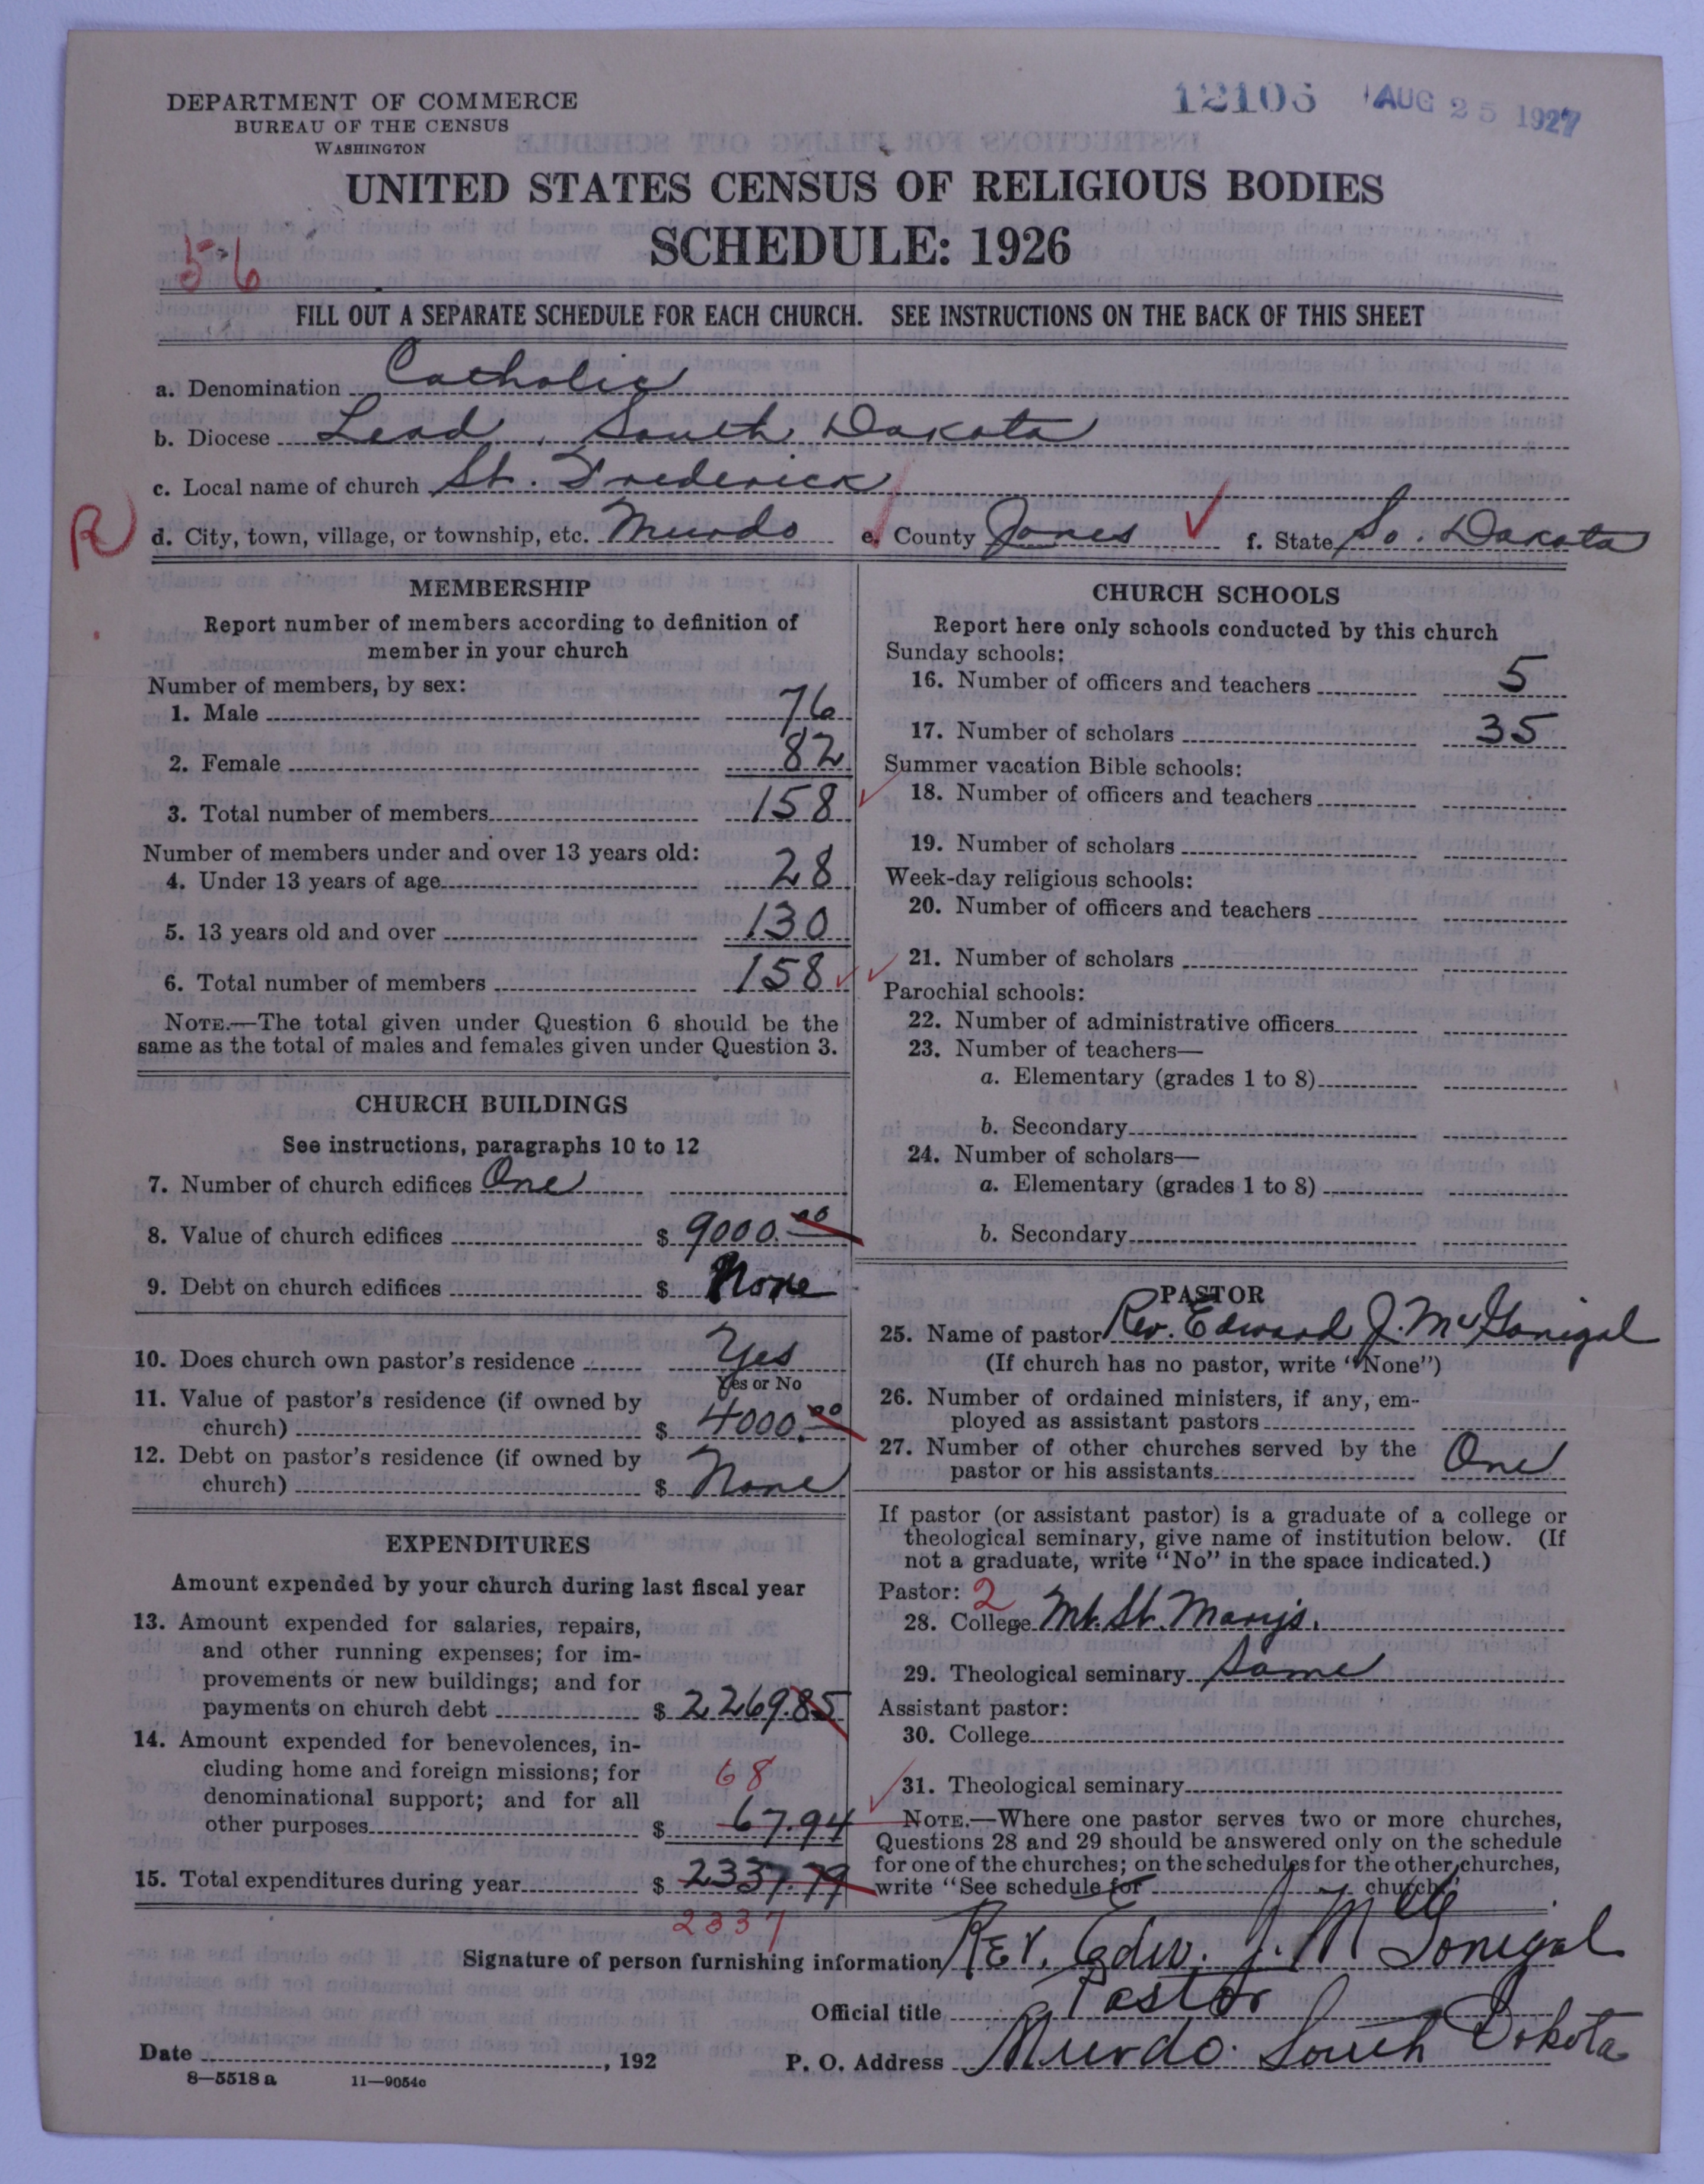 DEPARTMENT OF COMMERCE
BUREAU OF THE CENSUS
WASHINGTON
12106 AUG 25 1927
UNITED STATES CENSUS OF RELIGIOUS BODIES
SCHEDULE: 1926
56
FILL OUT A SEPARATE SCHEDULE FOR EACH CHURCH. SEE INSTRUCTIONS ON THE BACK OF THIS SHEET
a. Denomination Catholic
b. Diocese Lead, South Dakota
c. Local name of church St. Frederick
R d. City, town, village, or township, etc. Murdo e. County Jones f. State So. Dakota
MEMBERSHIP
Report number of members according to definition of
member in your church
Number of members, by sex:
1. Male 76
2. Female 82
3. Total number of members 158
Number of members under and over 13 years old:
4. Under 13 years of age 28
5. 13 years old and over 130
6. Total number of members 158
NOTE.—The total given under Question 6 should be the
same as the total of males and females given under Question 3.
CHURCH BUILDINGS
See instructions, paragraphs 10 to 12
7. Number of church edifices One
8. Value of church edifices $ 9000.00
9. Debt on church edifices $ None
10. Does church own pastor's residence Yes
Yes or No
11. Value of pastor's residence (if owned by
church) $ 4000.00
12. Debt on pastor's residence (if owned by
church) $ None
EXPENDITURES
Amount expended by your church during last fiscal year
13. Amount expended for salaries, repairs,
and other running expenses; for im-
provements or new buildings; and for
payments on church debt $ 2269.85
14. Amount expended for benevolences, in-
cluding home and foreign missions; for
68
denominational support; and for all
other purposes $ 67.94
15. Total expenditures during year $ 2337.79
2337
CHURCH SCHOOLS
Report here only schools conducted by this church
Sunday schools:
16. Number of officers and teachers 5
17. Number of scholars 35
Summer vacation Bible schools:
18. Number of officers and teachers
19. Number of scholars
Week-day religious schools:
20. Number of officers and teachers
21. Number of scholars
Parochial schools:
22. Number of administrative officers
23. Number of teachers—
a. Elementary (grades 1 to 8)
b. Secondary
24. Number of scholars—
a. Elementary (grades 1 to 8)
b. Secondary
PASTOR
25. Name of pastor Rev. Edward J. McGonigal
(If church has no pastor, write "None")
26. Number of ordained ministers, if any, em-
ployed as assistant pastors
27. Number of other churches served by the
pastor or his assistants One
If pastor (or assistant pastor) is a graduate of a college or
theological seminary, give name of institution below. (If
not a graduate, write "No" in the space indicated.)
Pastor: 2
28. College Mt. St. Mary's.
29. Theological seminary Same
Assistant pastor:
30. College
31. Theological seminary
NOTE.—Where one pastor serves two or more churches,
Questions 28 and 29 should be answered only on the schedule
for one of the churches; on the schedules for the other churches,
write "See schedule for church."
Signature of person furnishing information Rev. Edw. J. McGonigal
Official title Pastor
Date , 192
P. O. Address Murdo. South Dakota
8—5518 a 11—9054c